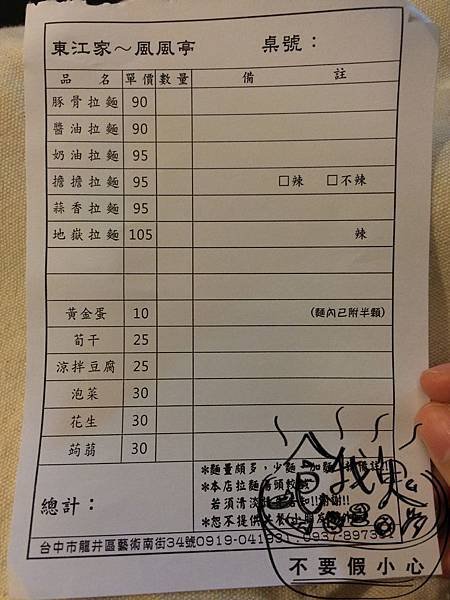 東江家～風風亭 桌號：
品 名 單價 數量 備 註
豚骨拉麵 90
醬油拉麵 90
奶油拉麵 95
擔擔拉麵 95 □辣 □不辣
蒜香拉麵 95
地嶽拉麵 105 辣
黃金蛋 10 (麵內已附半顆)
荀干 25
涼拌豆腐 25
泡菜 30
花生 30
蒟蒻 30
總計：
*麵量頗多，少麵
*本店拉麵湯頭較
若須清淡
*恕不提供
台中市龍井區藝術南街34號0919-041931
不要假小心